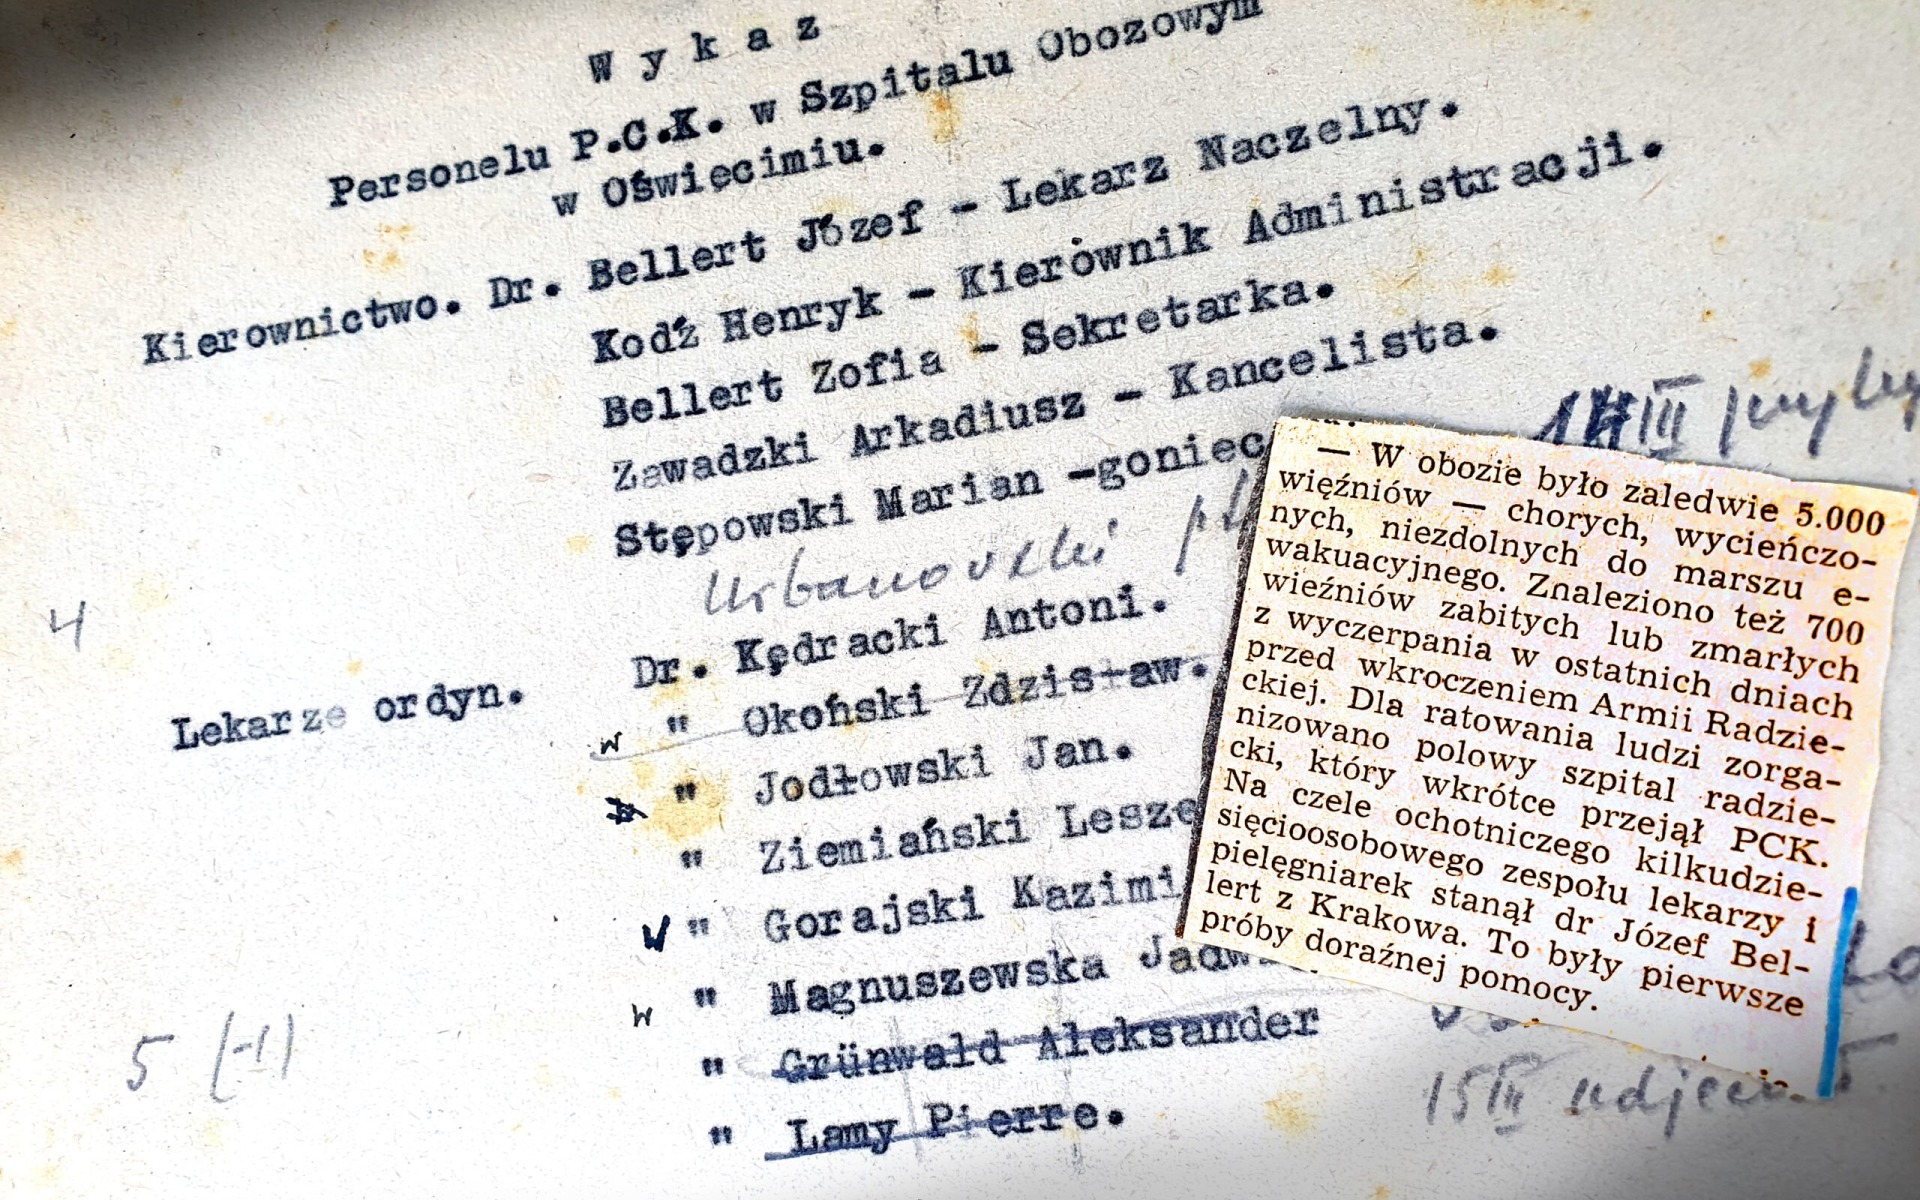 Wykaz
Personelu P.C.K. w Szpitalu Obozowym
w Oświęcimiu.
Kierownictwo. Dr. Bellert Józef - Lekarz Naczelny.
Kodź Henryk - Kierownik Administracji.
Bellert Zofia - Sekretarka.
Zawadzki Arkadiusz - Kancelista.
Stępowski Marian -goniec
14 III
Urbanowski
4
Lekarze ordyn. Dr. Kędracki Antoni.
w " Okoński Zdzisław.
" Jodłowski Jan.
" Ziemiański Lesze
W " Gorajski Kazimi
w " Magnuszewska Jadw
5 (-1)
" Grünwald Aleksander
" Lamy Pierre.
15 III
— W obozie było zaledwie 5.000
więźniów — chorych, wycieńczo-
nych, niezdolnych do marszu e-
wakuacyjnego. Znaleziono też 700
wieźniów zabitych lub zmarłych
z wyczerpania w ostatnich dniach
przed wkroczeniem Armii Radzie-
ckiej. Dla ratowania ludzi zorga-
nizowano polowy szpital radzie-
cki, który wkrótce przejął PCK.
Na czele ochotniczego kilkudzie-
sięcioosobowego zespołu lekarzy i
pielęgniarek stanął dr Józef Bel-
lert z Krakowa. To były pierwsze
próby doraźnej pomocy.